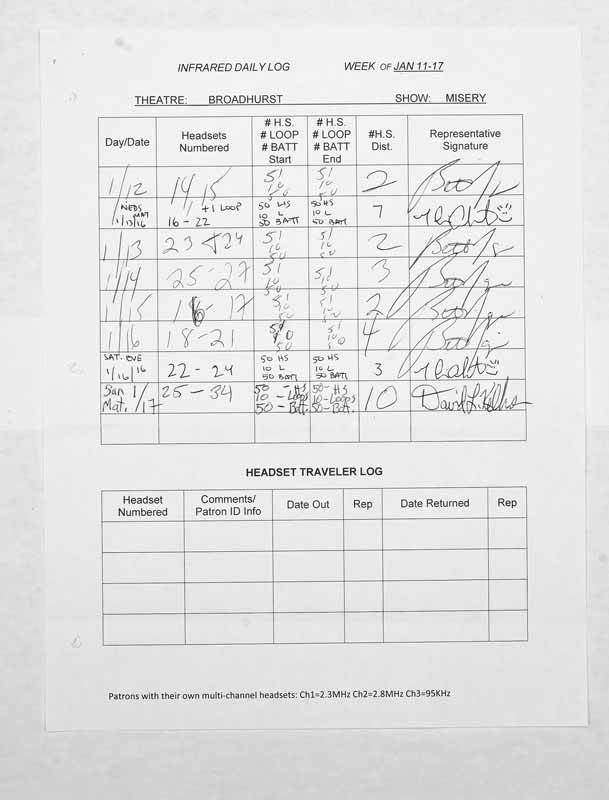 INFRARED DAILY LOG WEEK OF JAN 11-17
THEATRE: BROADHURST SHOW: MISERY
Day/Date
Headsets
Numbered
# H.S.
# LOOP
# BATT
Start
# H.S.
# LOOP
# BATT
End
#H.S.
Dist.
Representative
Signature
1/12 14 15 51 10 50 51 10 50 2
MAT
1/13/16
1 +1 LOOP
16 - 22
50 HS
10 L
50 BATT
50 HS
10 L
50 BATT
7
1/13 23 24 51 10 50 51 10 50 2
1/14 25-27 51 10 50 51 10 50 3
1/15 16-17 51 10 50 51 10 50 2
1/16 18-21 51 10 50 51 10 50 4
SAT. EVE
1/16/16
22 - 24
50 HS
10 L
50 BATT
50 HS
10 L
50 BATT
3
Sun 1/
Mat. /17
25 - 34
50 - HS
10 - Loops
50 - Batt.
50 - HS
10 - Loops
50 - Batt.
10
David L.
HEADSET TRAVELER LOG
Headset
Numbered
Comments/
Patron ID Info
Date Out
Rep
Date Returned
Rep
Patrons with their own multi-channel headsets: Ch1=2.3MHz Ch2=2.8MHz Ch3=95KHz